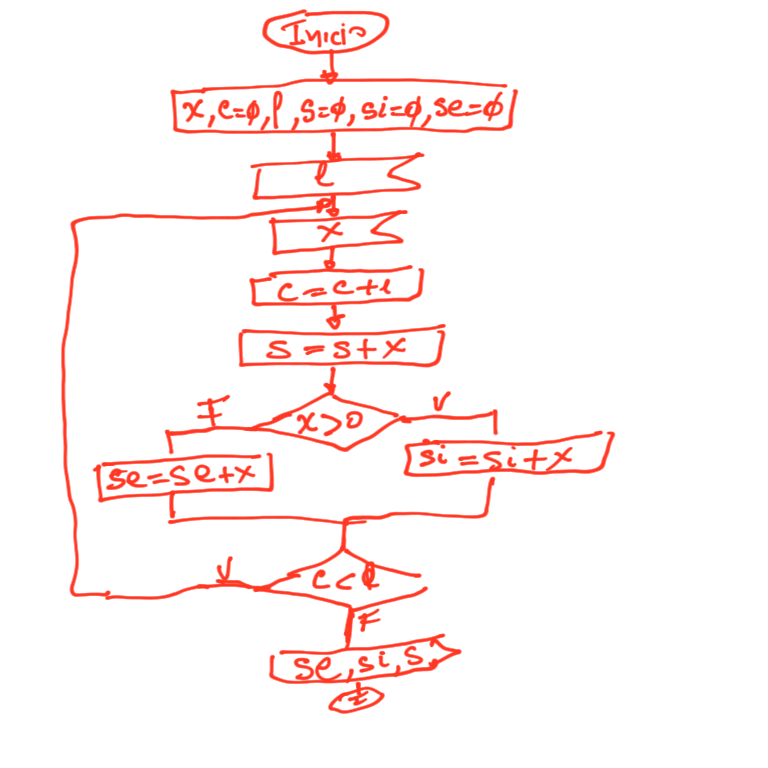 Inicio
x, c=ø, l, s=ø, si=ø, se=ø
l
x
c=c+1
s=s+x
F
x>0
V
se=se+x
si=si+x
V
c<l
F
se, si, s